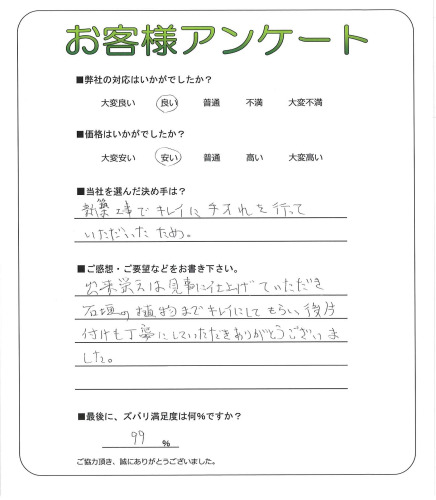 お客様アンケート
■弊社の対応はいかがでしたか？
大変良い　良い　普通　不満　大変不満
■価格はいかがでしたか？
大変安い　安い　普通　高い　大変高い
■当社を選んだ決め手は？
新築工事でキレイに手入れを行って
いただいたため。
■ご感想・ご要望などをお書き下さい。
出来栄えは見事に仕上げていただき
石垣の植物までキレイにしてもらい、後片
付けも丁寧にしていただきありがとうございま
した。
■最後に、ズバリ満足度は何%ですか？
99 %
ご協力頂き、誠にありがとうございました。